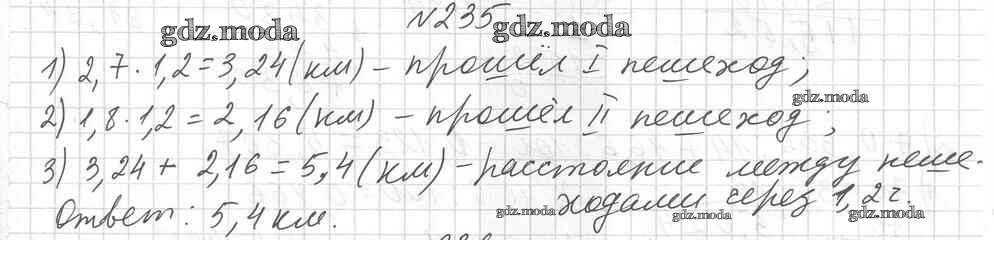 №235
gdz.moda
gdz.moda
1) 2,7 · 1,2 = 3,24 (км) – прошёл I пешеход;
gdz.moda
2) 1,8 · 1,2 = 2,16 (км) – прошёл II пешеход;
3) 3,24 + 2,16 = 5,4 (км) – расстояние между пеше-
ходами через 1,2 ч.
Ответ: 5,4 км.
gdz.moda
gdz.moda
gdz.moda